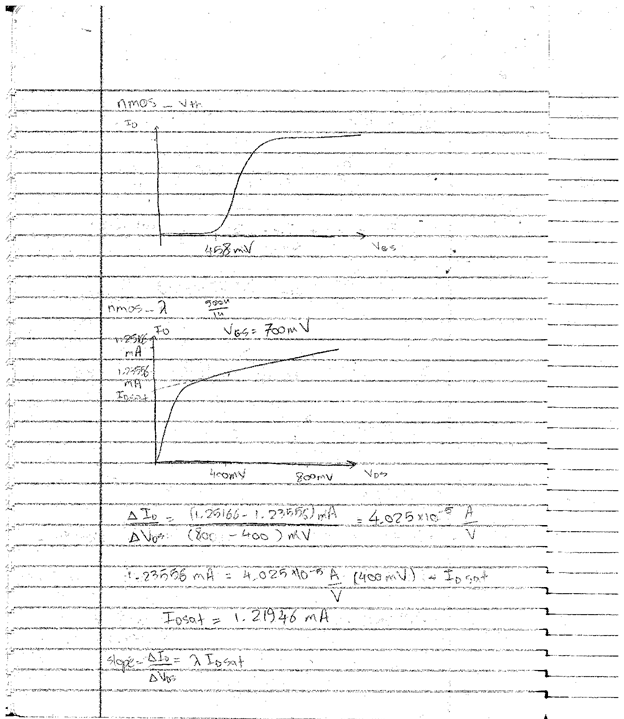 nmos - Vth
ID
458mV
VGS
nmos - λ
VGS = 700mV
ID
mA
1.23556
mA
IDsat
400mV 800mV VDS
ΔID/ΔVDS = (1.25166 - 1.23556)mA/(800 - 400)mV = 4.025×10⁻⁵ A/V
1.23556 mA = 4.025×10⁻⁵ A/V (400mV) + IDsat
IDsat = 1.21946 mA
slope = ΔID/ΔVDS = λ IDsat